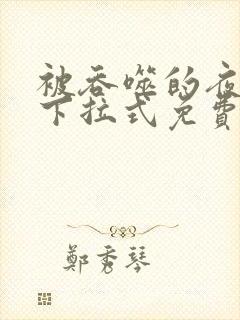 被吞噬的夜
下拉式免費
鄭秀琴